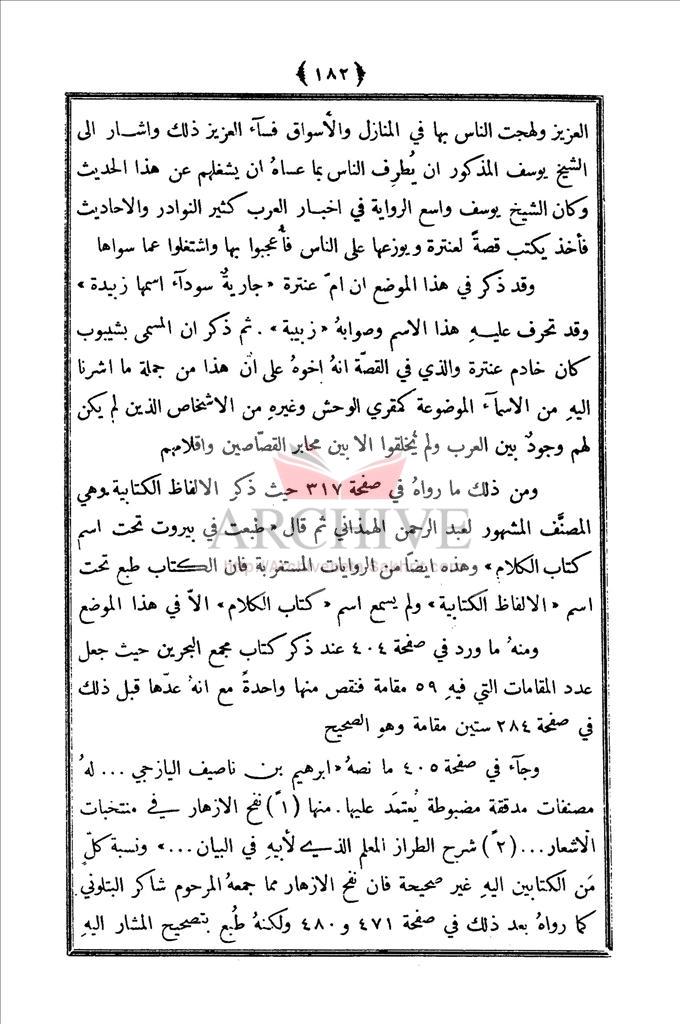 ﴿ ١٨٢ ﴾
العزيز ولهجت الناس بها في المنازل والأسواق فسآء العزيز ذلك واشار الى
الشيخ يوسف المذكور ان يُطرِف الناس بما عساهُ ان يشغلهم عن هذا الحديث
وكان الشيخ يوسف واسع الرواية في اخبار العرب كثير النوادر والاحاديث
فأخذ يكتب قصةً لعنترة ويوزعها على الناس فأُعجبوا بها واشتغلوا عما سواها
وقد ذكر في هذا الموضع ان امّ عنترة «جاريةٌ سودآء اسمها زبيدة»
وقد تحرف عليهِ هذا الاسم وصوابهُ «زبيبة». ثم ذكر ان المسمى بشيبوب
كان خادم عنترة والذي في القصّة انهُ اخوهُ على أن هذا من جملة ما اشرنا
اليهِ من الاسمآء الموضوعة كمقري الوحش وغيرهِ من الاشخاص الذين لم يكن
لهم وجودٌ بين العرب ولم يُخلقوا الا بين محابر القصّاصين واقلامهم
ومن ذلك ما رواهُ في صفحة ٣١٧ حيث ذكر الالفاظ الكتابية وهي
المصنَّف المشهور لعبد الرحمن الهمذاني ثم قال «طبعت في بيروت تحت اسم
كتاب الكلام» وهذه ايضاً من الروايات المستغربة فان الكتاب طبع تحت
اسم «الالفاظ الكتابية» ولم يسمع اسم «كتاب الكلام» الاّ في هذا الموضع
ومنهُ ما ورد في صفحة ٤٠٤ عند ذكر كتاب مجمع البحرين حيث جعل
عدد المقامات التي فيهِ ٥٩ مقامة فنقص منها واحدةً مع انهُ عدّها قبل ذلك
في صفحة ٢٨٤ ستين مقامة وهو الصحيح
وجآء في صفحة ٤٠٥ ما نصهُ «ابرهيم بن ناصيف اليازجي ... لهُ
مصنفات مدققة مضبوطة يُعتمَد عليها. منها (١ً) نفح الازهار في منتخبات
الاشعار ... (٢ً) شرح الطراز المعلم الذي لأبيهِ في البيان ...» ونسبة كلٍّ
مَن الكتابين اليهِ غير صحيحة فان نفح الازهار مما جمعهُ المرحوم شاكر البتلوني
كما رواهُ بعد ذلك في صفحة ٤٧١ و ٤٨٠ ولكنهُ طُبع بتصحيح المشار اليهِ
ARCHIVE